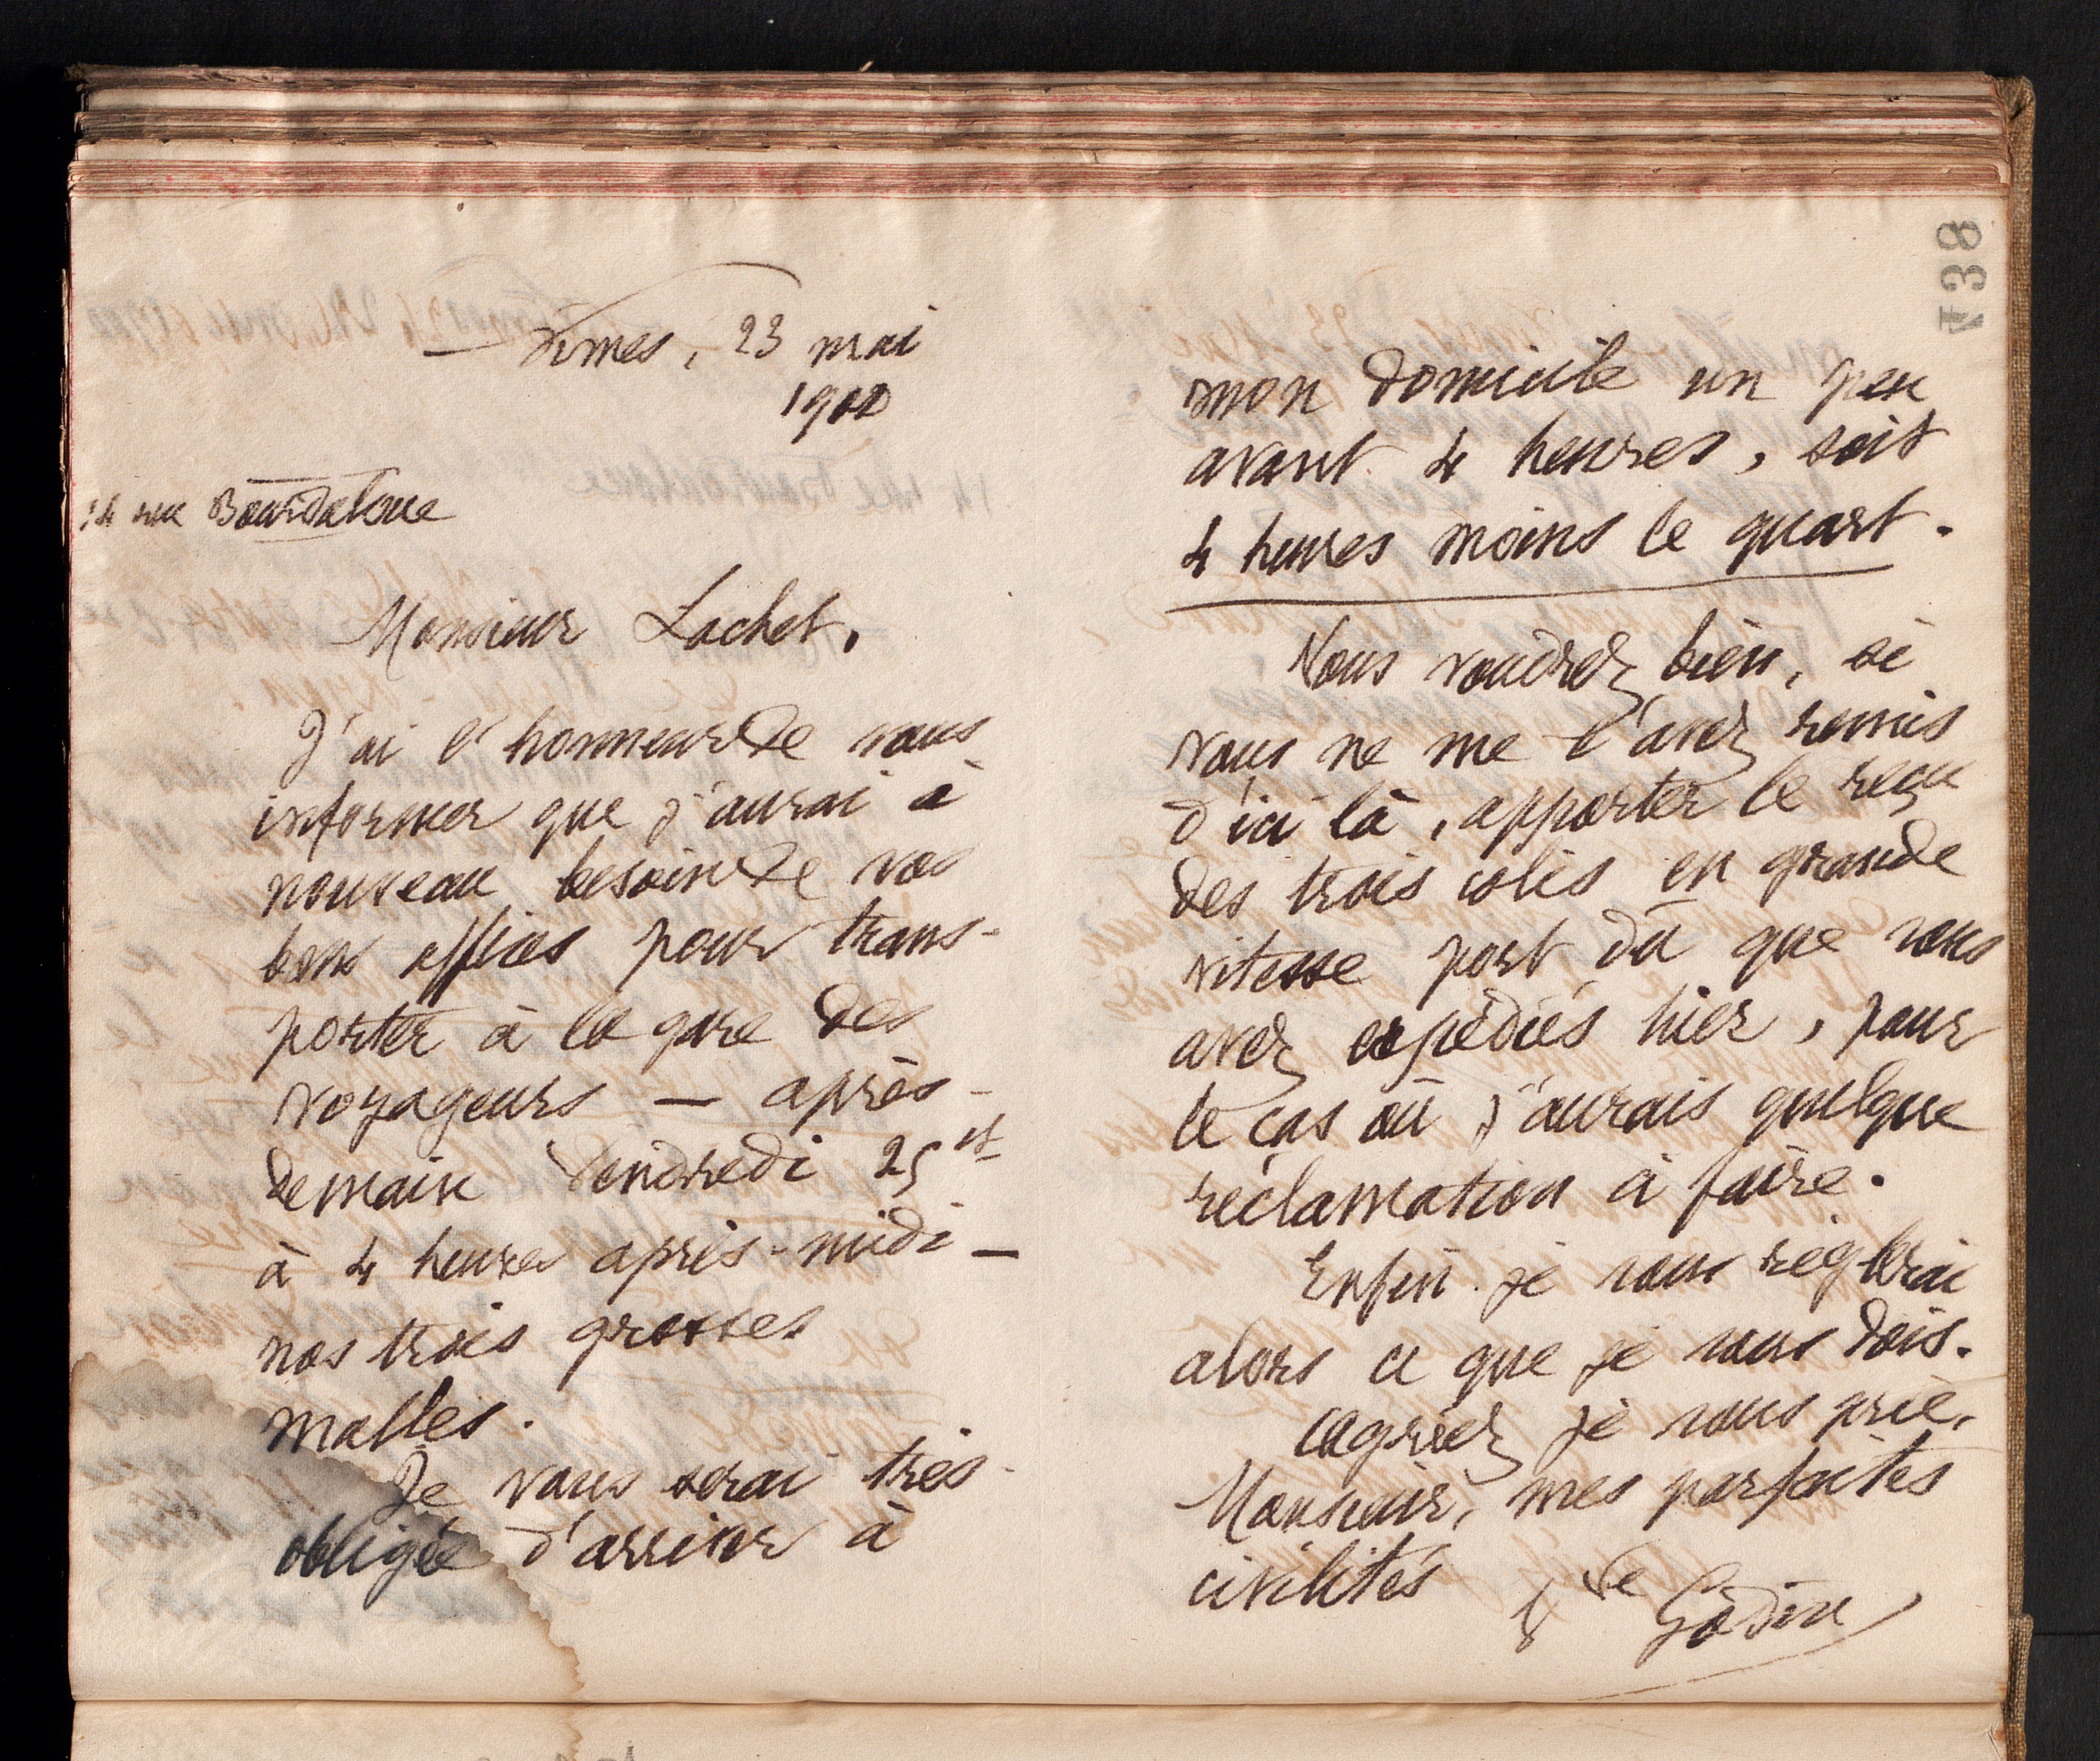 Nîmes, 23 mai
1900
14 rue Bourdaloue
Monsieur Lachet,
J'ai l'honneur de vous
informer que j'aurai à
nouveau besoin de vos
bons offices pour trans-
porter à la gare des
voyageurs — après-
demain Vendredi 25 ct
à 4 heures après-midi —
nos trois grosses
malles.
Je vous serai très
obligée d'arriver à
mon domicile un peu
avant 4 heures, soit
4 heures moins le quart.
Vous voudrez bien, si
vous ne me l'avez remis
d'ici là, apporter le reçu
des trois colis en grande
vitesse port dû que vous
avez expédiés hier, pour
le cas où j'aurais quelque
réclamation à faire.
Enfin je vous réglerai
alors ce que je vous dois.
Agréez je vous prie,
Monsieur, mes parfaites
civilités
Vve Godin
738